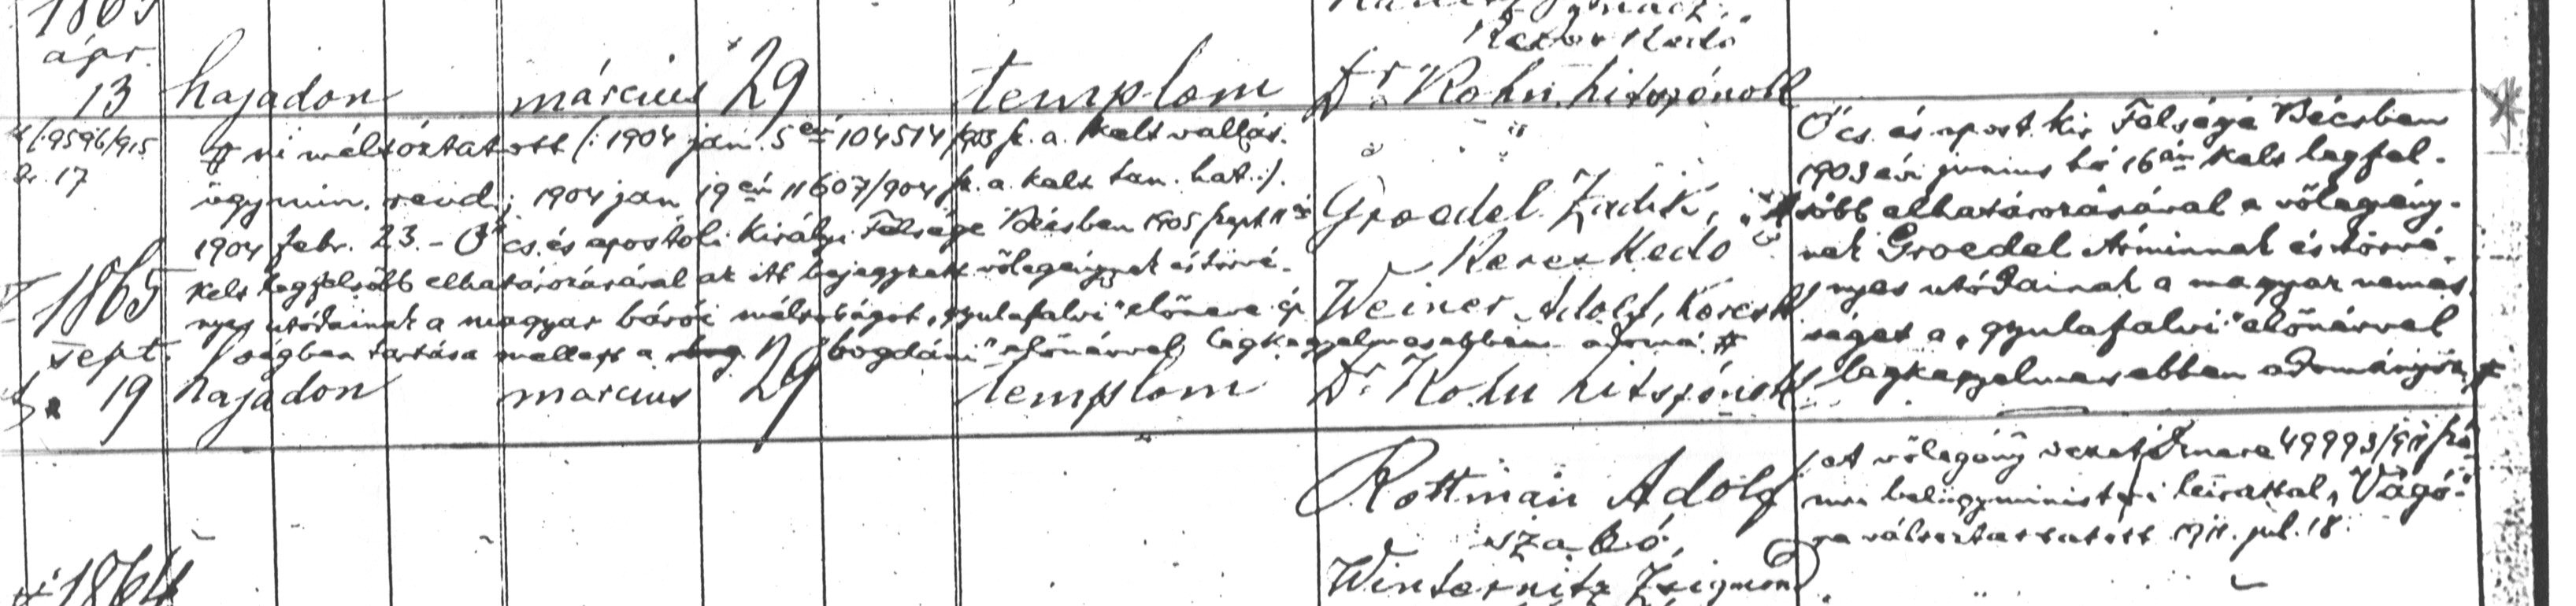 ápr.
13 hajadon március 29 templom Dr. Kohn hitszónok
Ő cs. és apost. kir. Felsége Bécsben
1903 évi junius hó 16án kelt legfel-
sőbb elhatározásával a vőlegény-
nek Groedel Árminnak és törvé-
nyes utódainak a magyar nemes-
séget a „gyulafalvi" előnévvel
legkegyelmesebben adományoz #
9596/915
17
# ni méltóztatott (: 1904 jan. 5én 104514/903 sz. a. kelt vallás.
ügymin. rend.; 1904 jan 19én 11607/904 sz. a. kelt tan. hat.:).
1904 febr. 23. - Ő cs. és apostoli Királyi Felsége Bécsben 1905 szept 11én
kelt legfelsőbb elhatározásával az itt bejegyzett vőlegénynek és törvé-
nyes utódainak a magyar bárói méltóságot, „gyulafalvi" előneve ép-
ségben tartása mellett a „bogdáni" előnévvel legkegyelmesebben adomá #
Groedel Zadik,
Kereskedő
Weiner Adolf, Keresk
1865
sept.
19 hajadon március 29 templom Dr. Kohn hitszónok
Rottman Adolf
szabó,
Winternitz Zsigmond
A vőlegény vezetékneve 49993/911 szá
mu belügyministeri leirattal „Vágó"-
ra változtattatott. 911. jul. 18.
1864